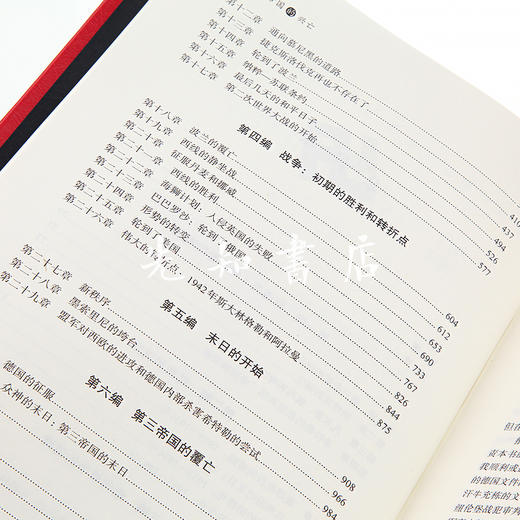 国的兴亡
第十二章 通向慕尼黑的道路
第十三章 捷克斯洛伐克再也不存在了 410
第十四章 轮到了波兰 437
第十五章 纳粹—苏联条约 494
第十六章 最后几天的和平日子 526
第十七章 第二次世界大战的开始 577
第四编 战争：初期的胜利和转折点
第十八章 波兰的覆亡 604
第十九章 西线的静坐战 612
第二十章 征服丹麦和挪威 653
第二十一章 西线的胜利 690
第二十二章 海狮计划：入侵英国的失败 733
第二十三章 巴巴罗沙：轮到了俄国 767
第二十四章 形势的转变 826
第二十五章 轮到了美国 844
第二十六章 伟大的转折点：1942年斯大林格勒和阿拉曼 875
第五编 末日的开始
第二十七章 新秩序 908
第二十八章 墨索里尼的垮台 966
第二十九章 盟军对西欧的进攻和德国内部杀害希特勒的尝试 984
第六编 第三帝国的覆亡
德国的征服
众神的末日：第三帝国的末日
老知書店
但在
本书的
我顺利成
的德国文件
汗牛充栋的文
纽伦堡战犯审判